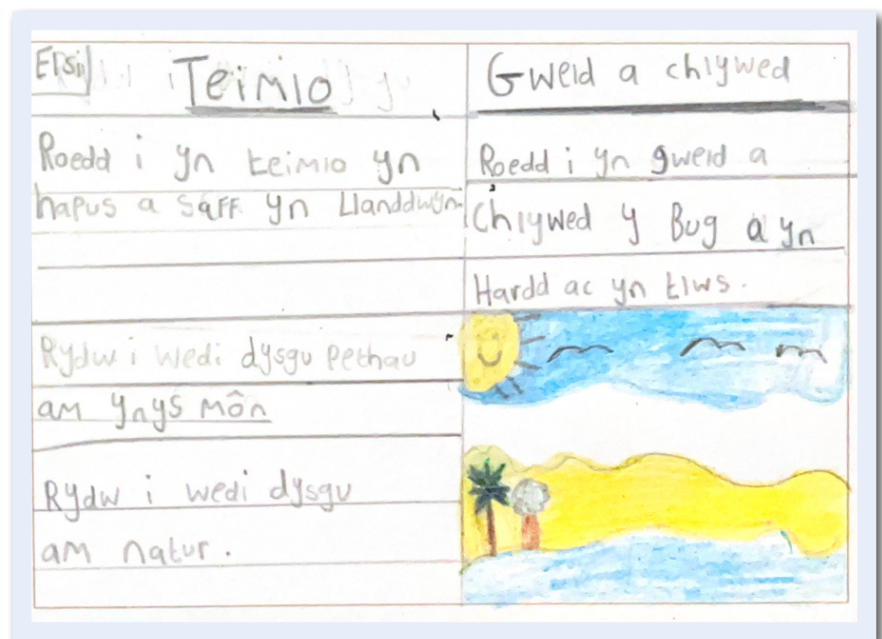 Elsi
Teimlo
Roedd i yn teimlo yn
hapus a saff yn Llanddwyn.
Rydw i wedi dysgu pethau
am Ynys Môn
Rydw i wedi dysgu
am natur.
Gweld a chlywed
Roedd i yn gweld a
Chlywed y Bug a yn
Hardd ac yn tlws.